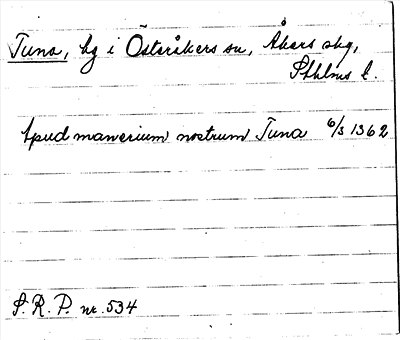 Tuna, hg i Österåkers sn, Åkers skg,
Sthlms l.
apud manerium nostrum Tuna 6/3 1362
S.R.P. nr. 534